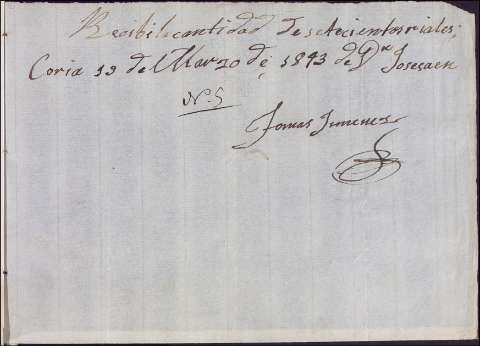 Recibi la cantidad de setecientos riales;
Coria 13 de Marzo de 1843 de Dn Jose saen
Nº 5
Tomas Jimenez